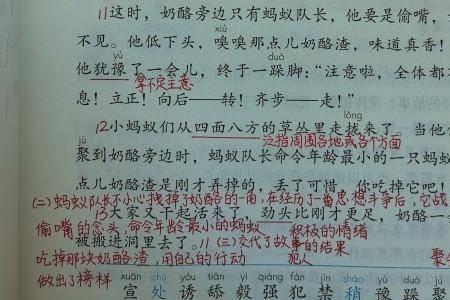 11这时，奶酪旁边只有蚂蚁队长，他要是偷嘴，
xiù
不见。他低下头，嗅嗅那点儿奶酪渣，味道真香！
yù duò
他犹豫了一会儿，终于一跺脚：“注意啦，全体都
拿不定主意
息！立正！向后——转！齐步——走！”
lǒng
12小蚂蚁们从四面八方的草丛里走拢来了。当他
泛指周围各地或各个方面
jù
聚到奶酪旁边时，蚂蚁队长命令年龄最小的一只蚂
点儿奶酪渣是刚才弄掉的，丢了可惜，你吃掉它吧！
(二)蚂蚁队长不小心拽掉了奶酪的一角，在经历了一番思想斗争后，它战
13大家又干起活来了，劲头比刚才更足，奶酪一
偷嘴的念头，命令年龄最小的蚂蚁 积极的情绪
被搬进洞里去了。11(三)交代了故事的结果
吃掉那块奶酪渣，用自己的行动 犯人 聚
做出了榜样
xuān chǔ yòu tiǎn yì qiáng fàn jìn shāo yù duò jù
宣 处 诱 舔 毅 强 犯 禁 稍 豫 跺 聚